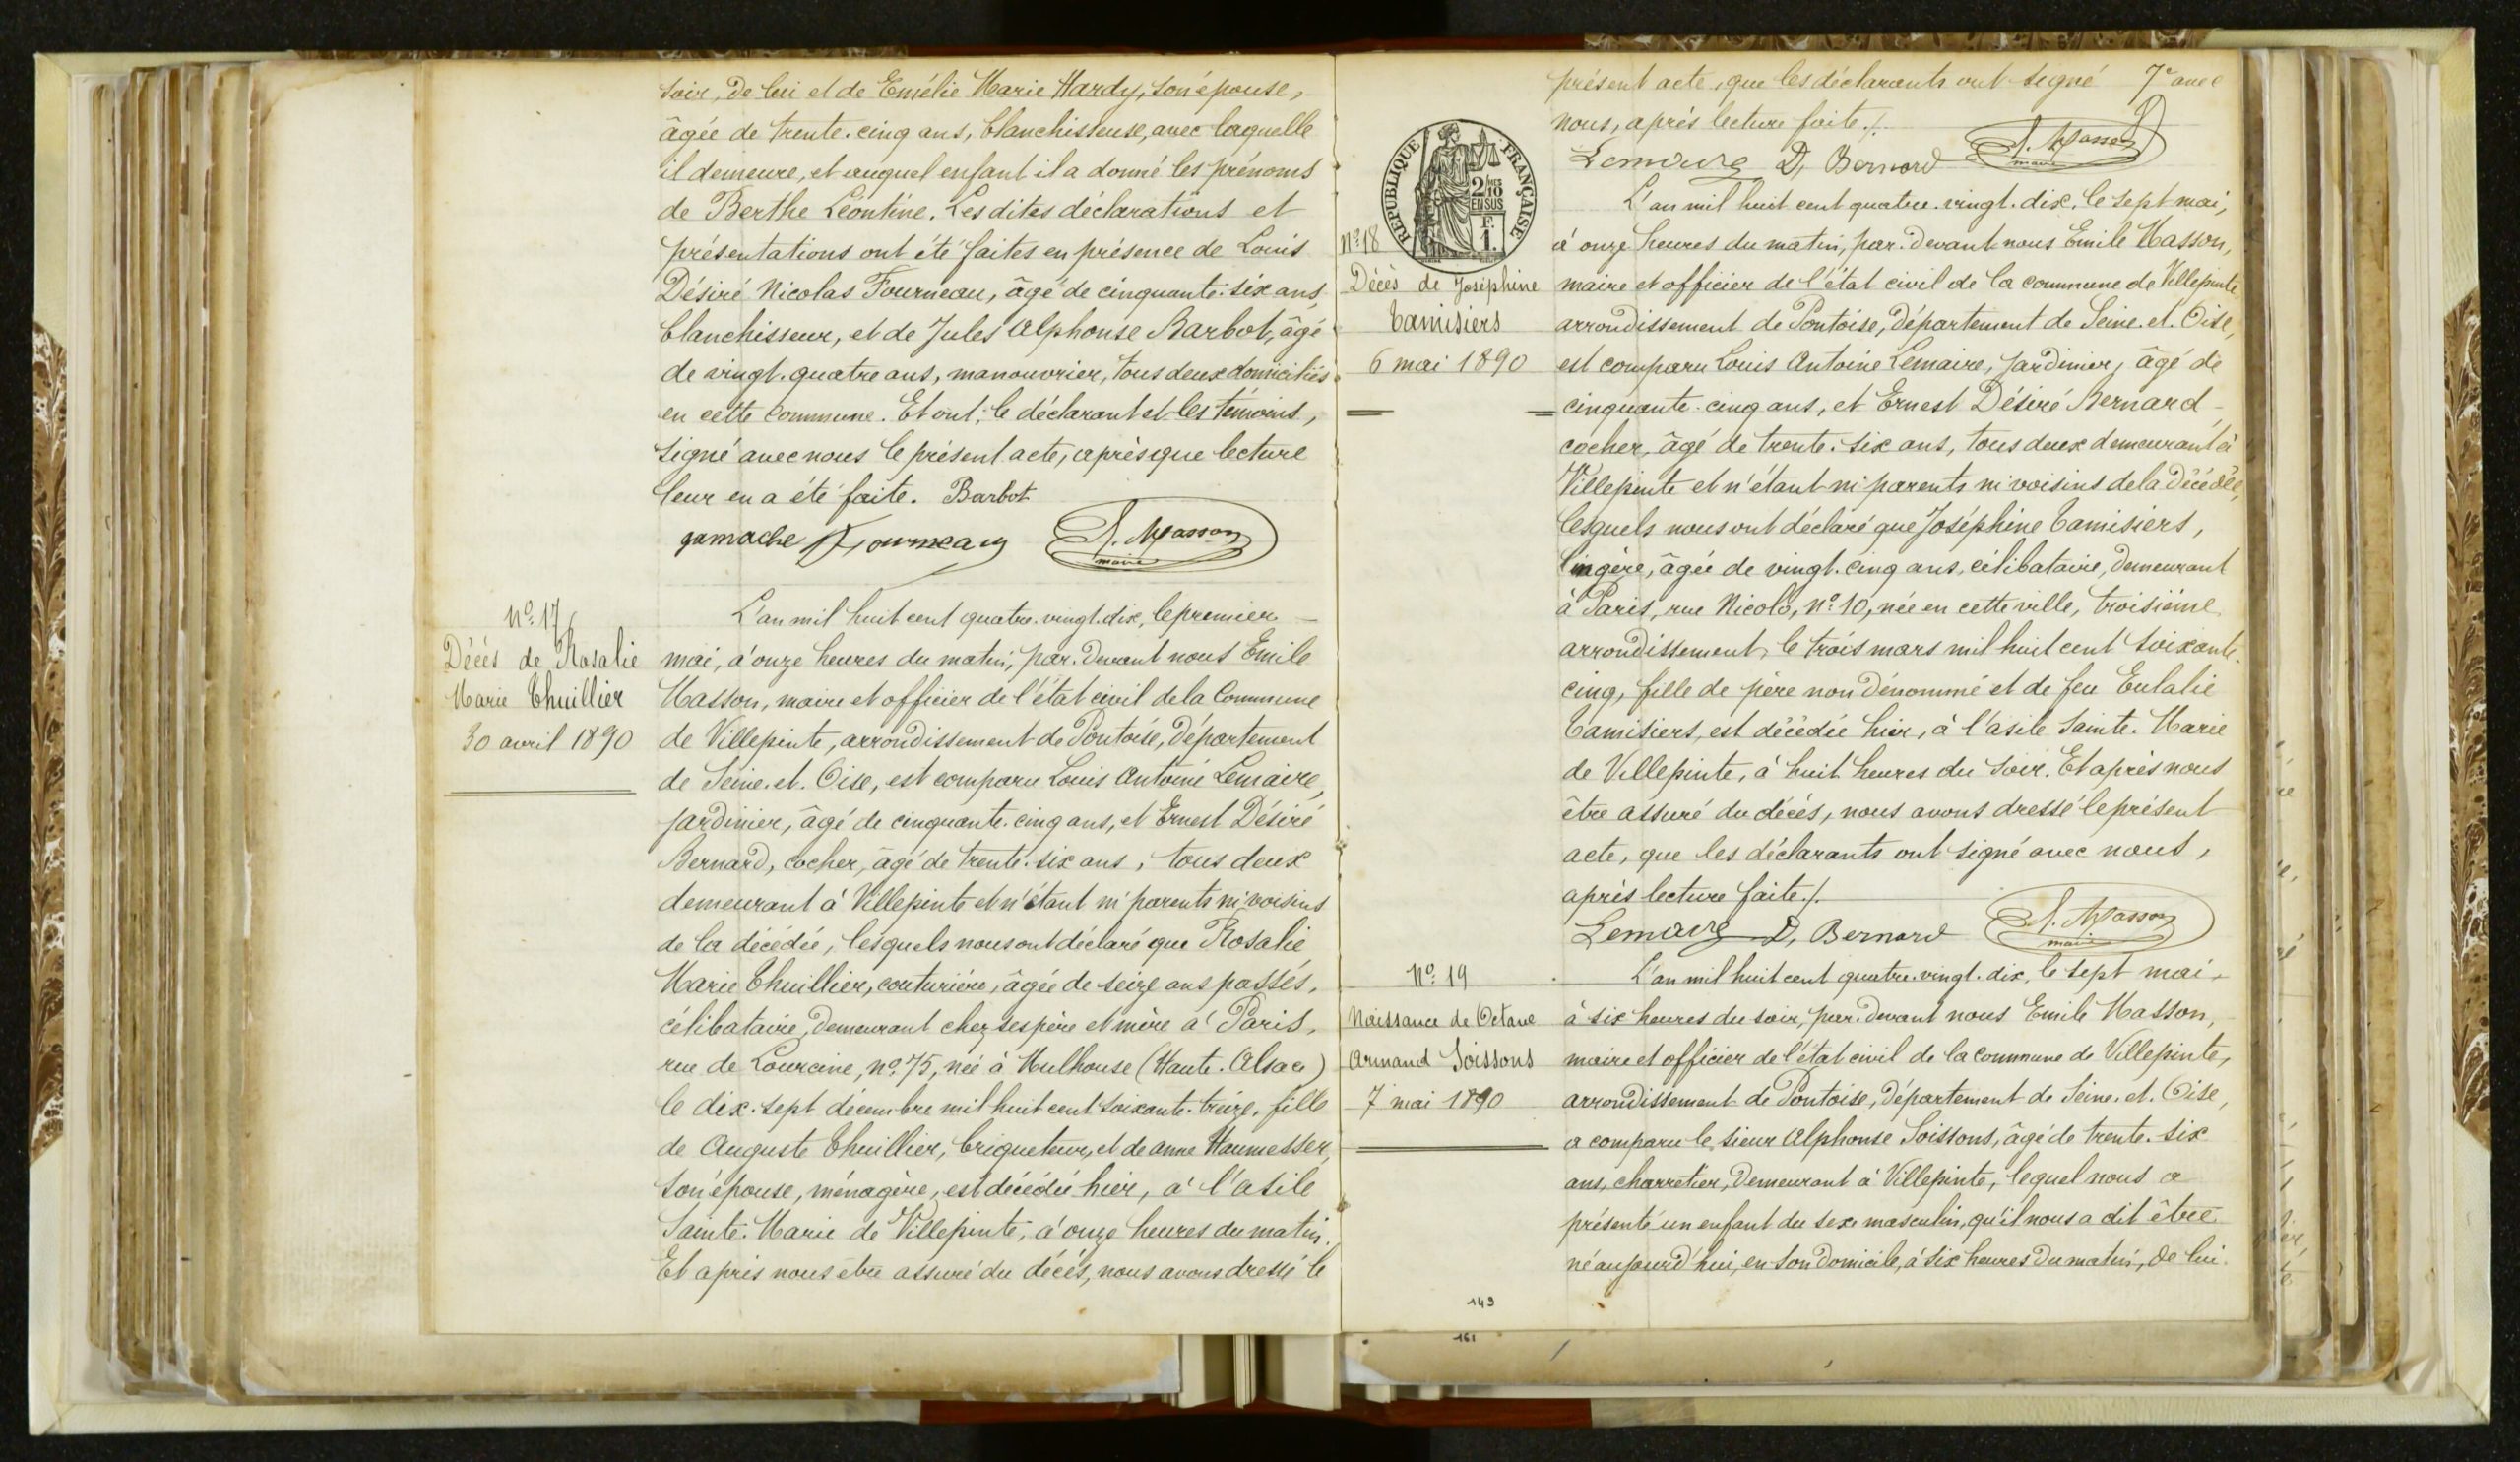 soir, de lui et de Emélie Marie Hardy, son épouse,
âgée de trente-cinq ans, blanchisseuse, avec laquelle
il demeure, et auquel enfant il a donné les prénoms
de Berthe Léontine. Les dites déclarations et
présentations ont été faites en présence de Louis
Désiré Nicolas Fourneau, âgé de cinquante-six ans,
blanchisseur, et de Jules Alphonse Barbot, âgé
de vingt-quatre ans, manouvrier, tous deux domiciliés
en cette commune. Et ont, le déclarant et les témoins,
signé avec nous le présent acte, après que lecture
leur en a été faite. Barbot
gamache Fourneau A. Masson
maire
No. 17
Décès de Rosalie
Marie Thuillier
30 avril 1890
L'an mil huit cent quatre-vingt-dix, le premier
mai, à onze heures du matin, par-devant nous Emile
Masson, maire et officier de l'état civil de la Commune
de Villepinte, arrondissement de Pontoise, département
de Seine-et-Oise, est comparu Louis Antoine Lemaire,
jardinier, âgé de cinquante-cinq ans, et Ernest Désiré
Bernard, cocher, âgé de trente-six ans, tous deux
demeurant à Villepinte et n'étant ni parents ni voisins
de la décédée, lesquels nous ont déclaré que Rosalie
Marie Thuillier, couturière, âgée de seize ans passés,
célibataire, demeurant chez ses père et mère à Paris,
rue de Lourcine, no. 75, née à Mulhouse (Haute-Alsace)
le dix-sept décembre mil huit cent soixante-treize, fille
de Auguste Thuillier, briqueteur, et de anne Haumesser,
son épouse, ménagère, est décédée hier, à l'asile
Sainte-Marie de Villepinte, à onze heures du matin.
Et après nous être assuré du décès, nous avons dressé le
présent acte, que les déclarants ont signé avec
7e
nous, après lecture faite./.
Lemaire D, Bernard A. Masson
maire
RÉPUBLIQUE FRANÇAISE
2/10MES
EN SUS
F.
1.
No. 18
Décès de Joséphine
Tamisiers
6 mai 1890
L'an mil huit cent quatre-vingt-dix, le sept mai,
à onze heures du matin, par-devant nous Emile Masson,
maire et officier de l'état civil de la commune de Villepinte,
arrondissement de Pontoise, département de Seine-et-Oise,
est comparu Louis Antoine Lemaire, jardinier, âgé de
cinquante-cinq ans, et Ernest Désiré Bernard
cocher, âgé de trente-six ans, tous deux demeurant à
Villepinte et n'étant ni parents ni voisins de la décédée,
lesquels nous ont déclaré que Joséphine Tamisiers,
lingère, âgée de vingt-cinq ans, célibataire, demeurant
à Paris, rue Nicolo, no. 10, née en cette ville, troisième
arrondissement, le trois mars mil huit cent soixante-
cinq, fille de père non dénommé et de feu Eulalie
Tamisiers, est décédée hier, à l'asile Sainte-Marie
de Villepinte, à huit heures du soir. Et après nous
être assuré du décès, nous avons dressé le présent
acte, que les déclarants ont signé avec nous,
après lecture faite./.
Lemaire D, Bernard A. Masson
maire
No. 19
Naissance de Octave
Armand Soissons
7 mai 1890
L'an mil huit cent quatre-vingt-dix, le sept mai,
à six heures du soir, par-devant nous Emile Masson,
maire et officier de l'état civil de la commune de Villepinte,
arrondissement de Pontoise, département de Seine-et-Oise,
a comparu le sieur Alphonse Soissons, âgé de trente-six
ans, charretier, demeurant à Villepinte, lequel nous a
présenté un enfant du sexe masculin, qu'il nous a dit être
né aujourd'hui, en son domicile, à six heures du matin, de lui
149
161